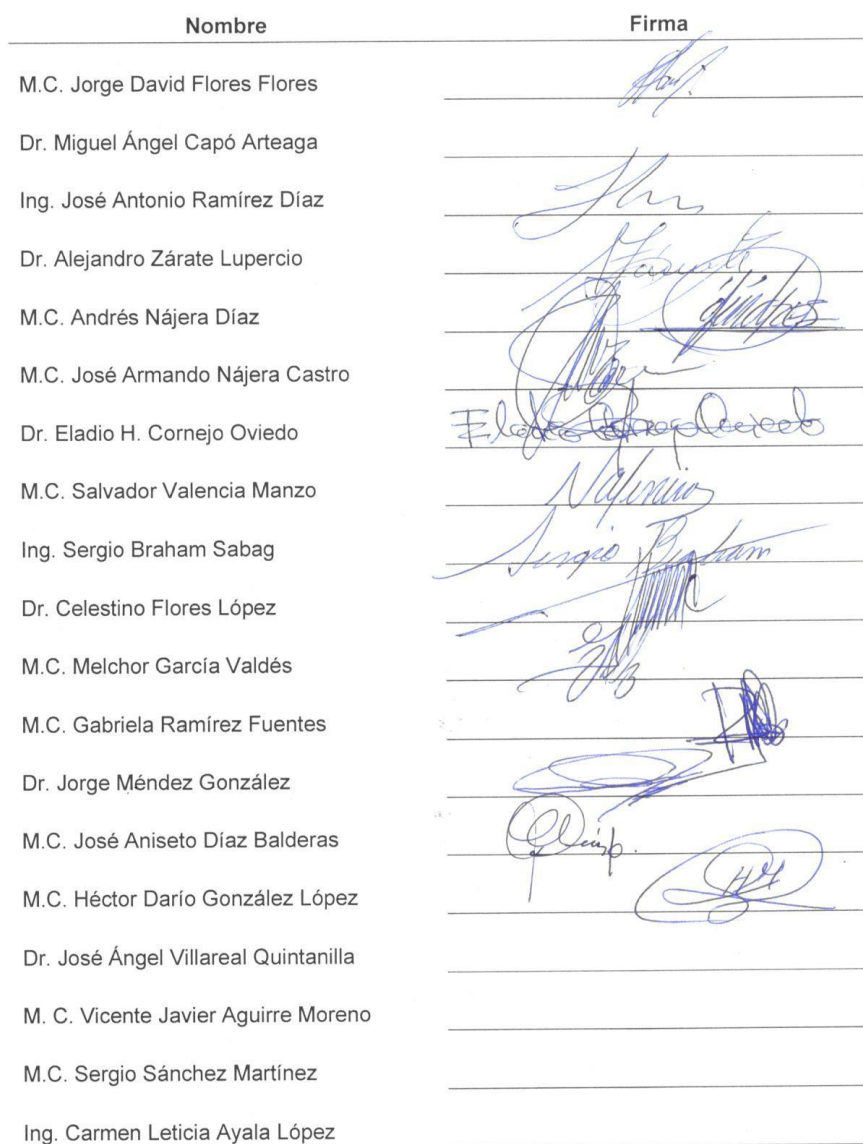 Nombre Firma
M.C. Jorge David Flores Flores
Dr. Miguel Ángel Capó Arteaga
Ing. José Antonio Ramírez Díaz
Dr. Alejandro Zárate Lupercio
M.C. Andrés Nájera Díaz
M.C. José Armando Nájera Castro
Dr. Eladio H. Cornejo Oviedo Eladio Cornejo Oviedo
M.C. Salvador Valencia Manzo Valencia
Ing. Sergio Braham Sabag Sergio Braham
Dr. Celestino Flores López
M.C. Melchor García Valdés
M.C. Gabriela Ramírez Fuentes
Dr. Jorge Méndez González
M.C. José Aniseto Díaz Balderas
M.C. Héctor Darío González López
Dr. José Ángel Villareal Quintanilla
M. C. Vicente Javier Aguirre Moreno
M.C. Sergio Sánchez Martínez
Ing. Carmen Leticia Ayala López